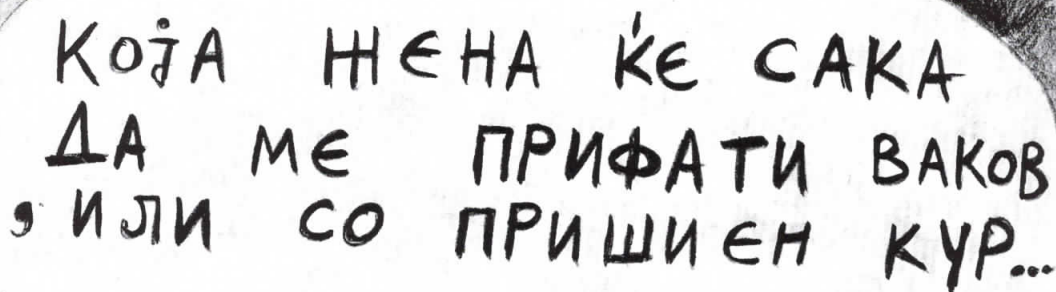 КОЈА ЖЕНА ЌЕ САКА
ДА МЕ ПРИФАТИ ВАКОВ
, ИЛИ СО ПРИШИЕН КУР...